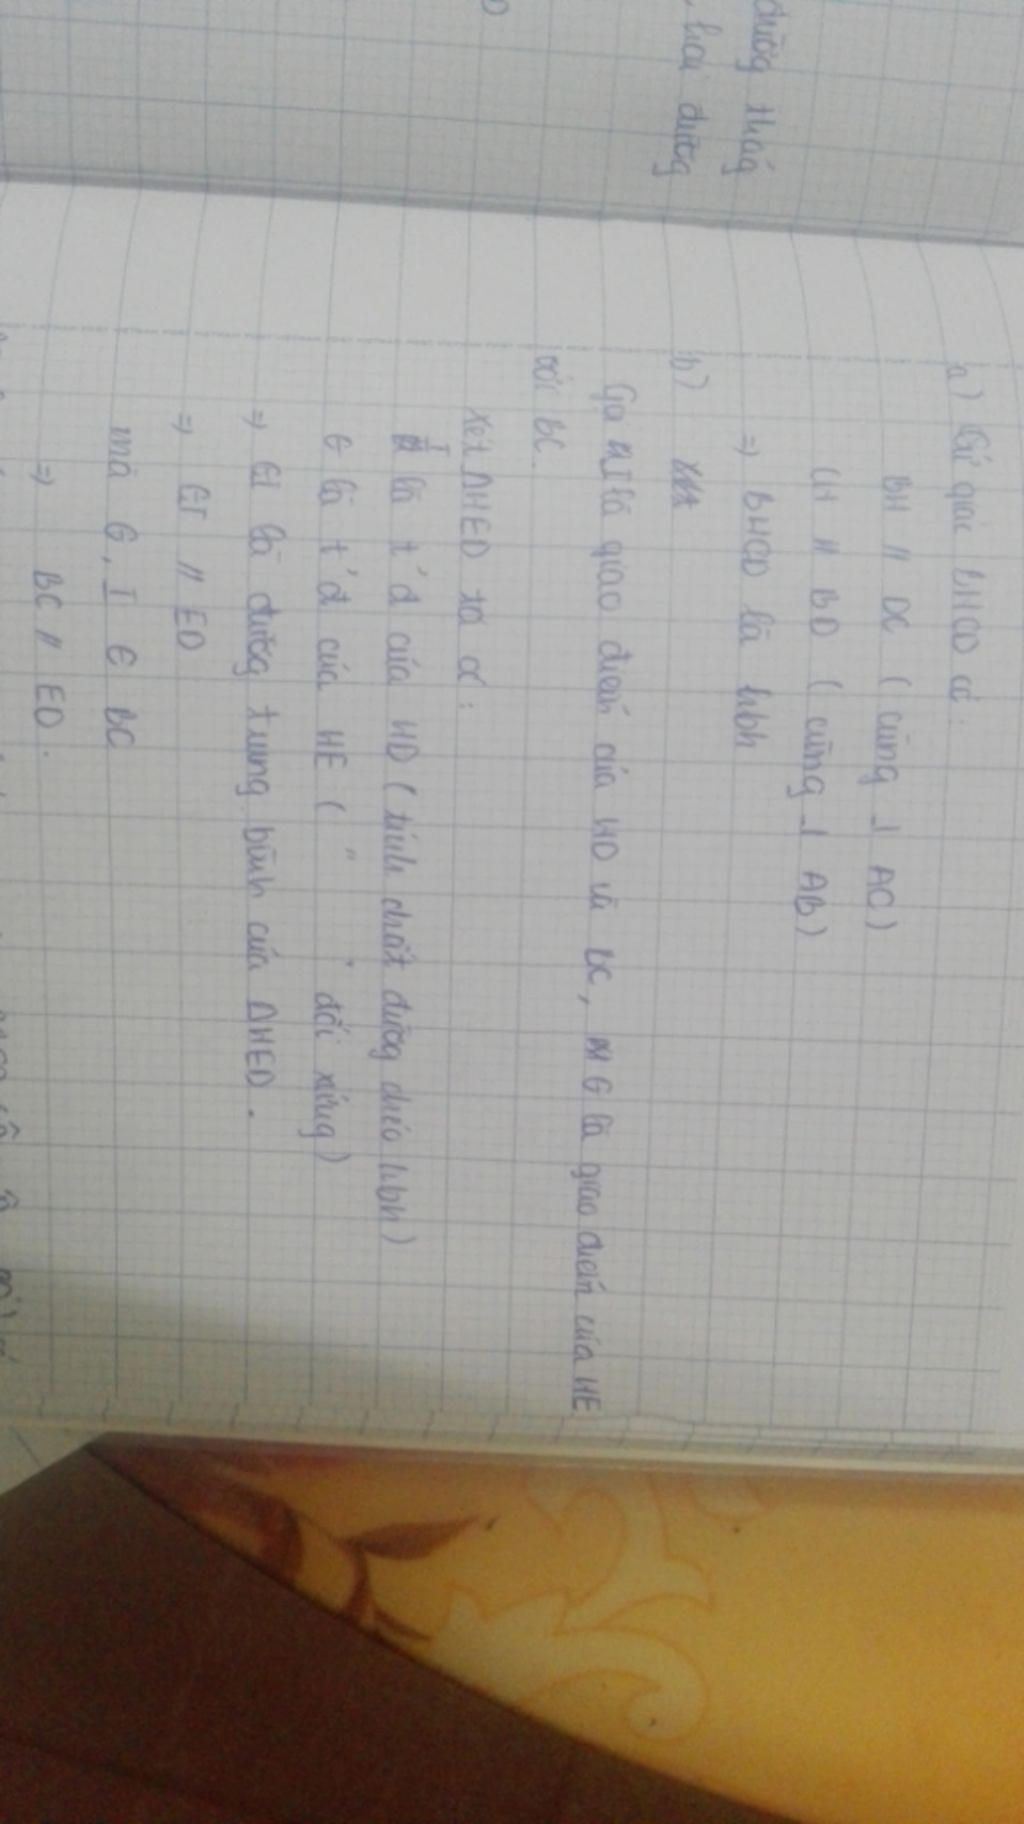 đường thẳg
, hai đường
a) Tứ giác BHCD có:
BH // DC ( cùng ⊥ AC)
CH // BD ( cùng ⊥ AB)
⇒ BHCD là hbh
b) Xét
Gọi I là giao điểm của HD và BC, G là giao điểm của HE
với BC.
Xét ΔHED ta có:
I là t'đ của HD ( tính chất đường chéo hbh)
G là t'đ của HE ( " " đối xứng)
⇒ GI là đường trung bình của ΔHED.
⇒ GI // ED
mà G, I ∈ BC
⇒ BC // ED.